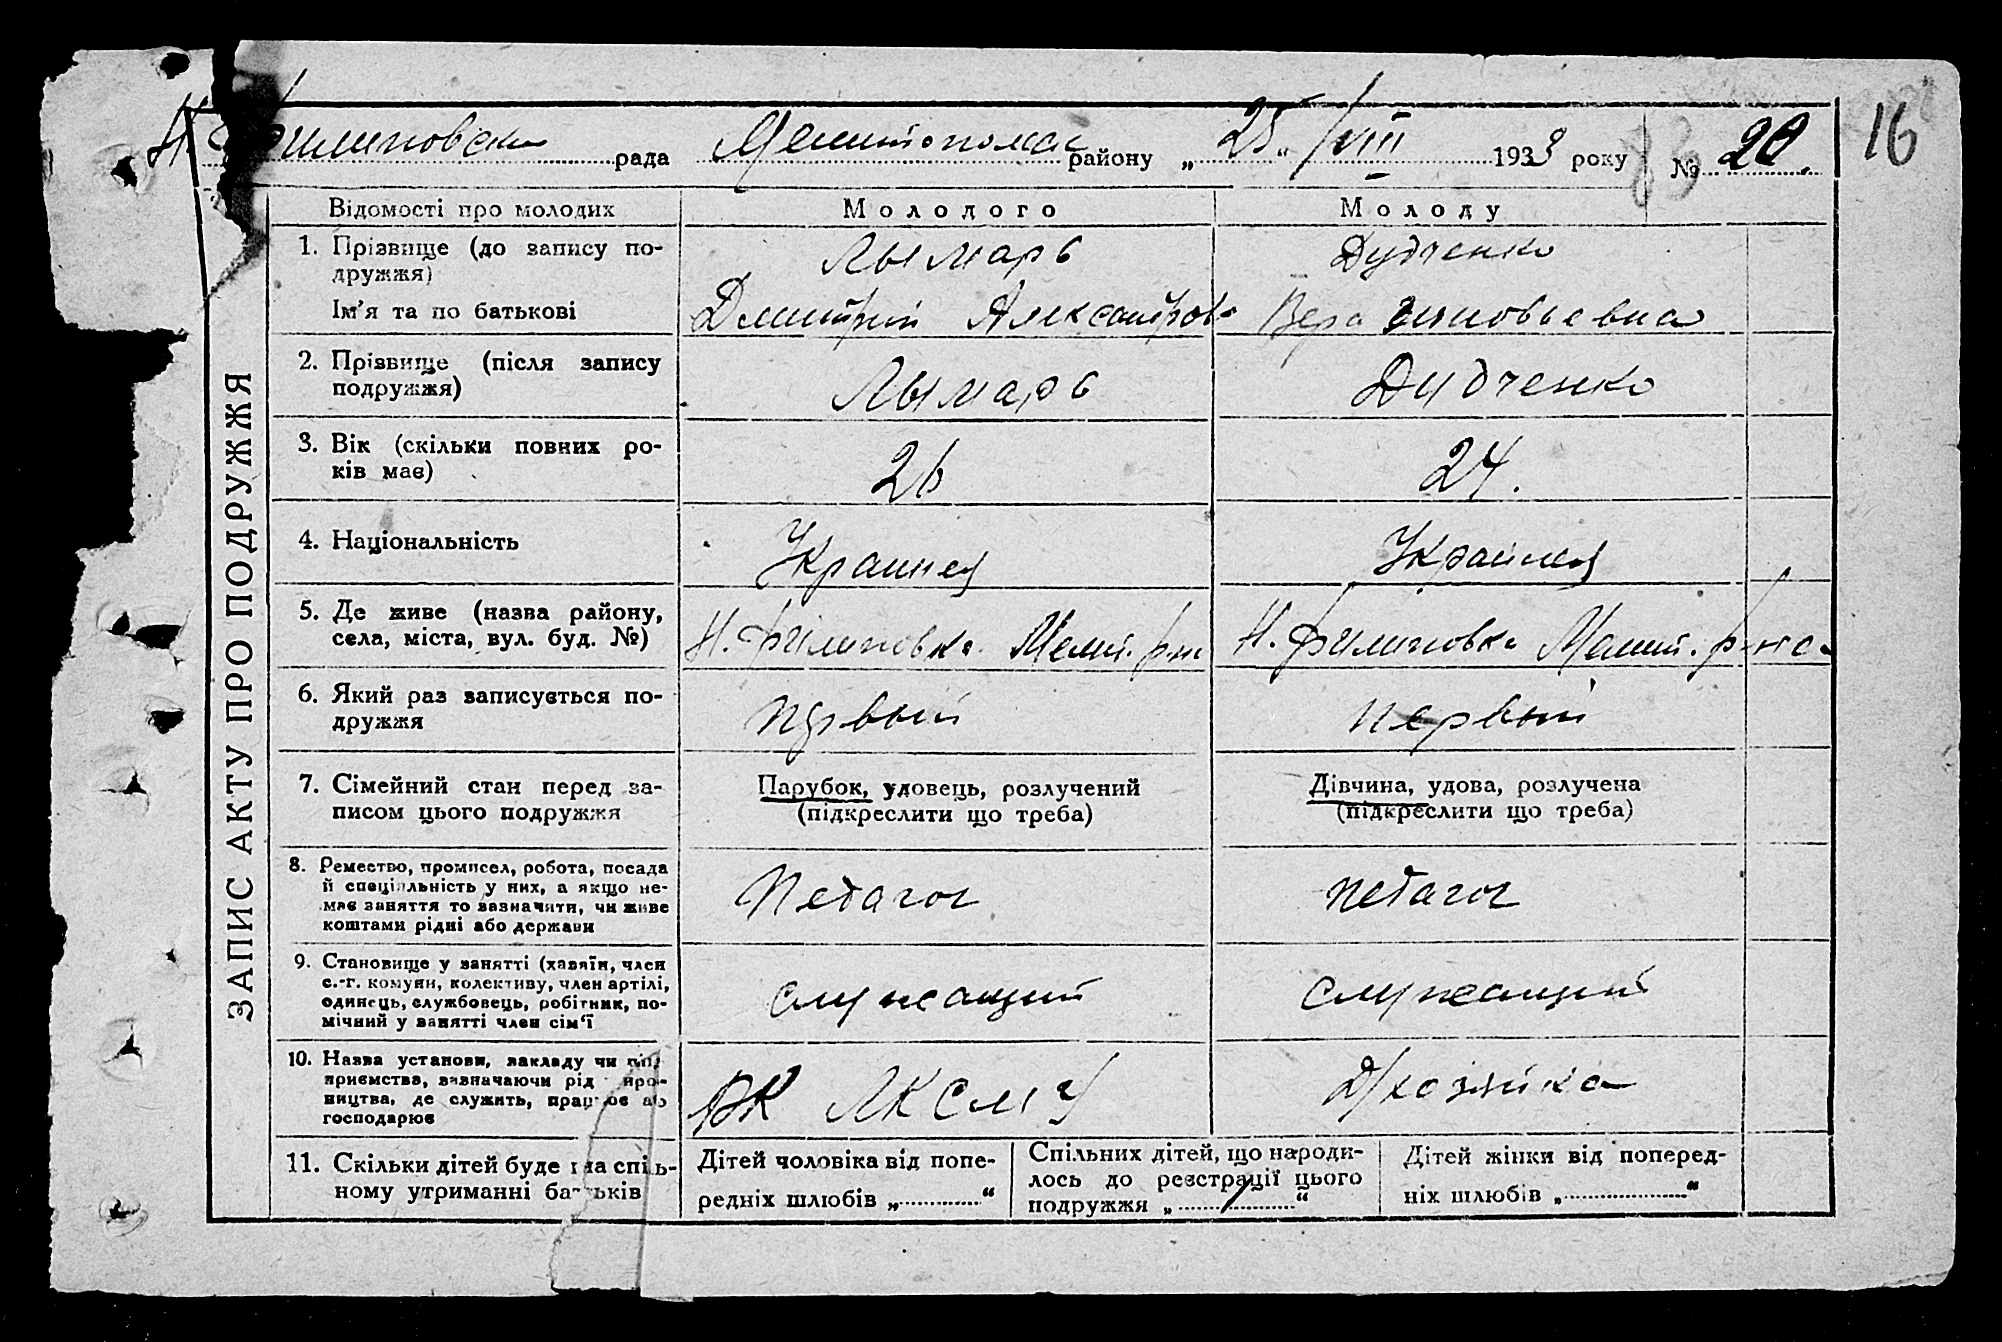 16
Н. Филиповска рада Мелитопольс району „25“ /VIII 1933 року № 20.
ЗАПИС АКТУ ПРО ПОДРУЖЖЯ
Відомості про молодих
Молодого
Молоду
1. Прізвище (до запису по-
дружжя)
Лымарь
Дудченко
Ім'я та по батькові
Дмитрий Александров
Вера Зиновьевна
2. Прізвище (після запису
подружжя)
Лымарь
Дудченко
3. Вік (скільки повних ро-
ків має)
26
24.
4. Національність
Украинец
5. Де живе (назва району,
села, міста, вул. буд. №)
Н. Филиповка Мелит. р-на
Н. Филиповка Мелит. р-на
6. Який раз записується по-
дружжя
первый
первый
7. Сімейний стан перед за-
писом цього подружжя
Парубок, удовець, розлучений
(підкреслити що треба)
Дівчина, удова, розлучена
(підкреслити що треба)
8. Ремество, промисел, робота, посада
й спеціяльність у них, а якщо не-
має заняття то зазначити, чи живе
коштами рідні або держави
Педагог
педагог
9. Становище у занятті (хазяїн, член
с.-г. комуни, колективу, член артілі,
одинець, службовець, робітник, по-
мічний у занятті член сім'ї
служащий
служащий
10. Назва установи, закладу чи під-
приємства, зазначаючи рід виро-
ництва, де служить, працює або
господарює
РК ЛКСМУ
Д/хозяйка
11. Скільки дітей буде на спіль-
ному утриманні батьків
Дітей чоловіка від попе-
редніх шлюбів „ “
Спільних дітей, що народи-
лось до реєстрації цього
подружжя „ 1 “
Дітей жінки від поперед-
ніх шлюбів „ “